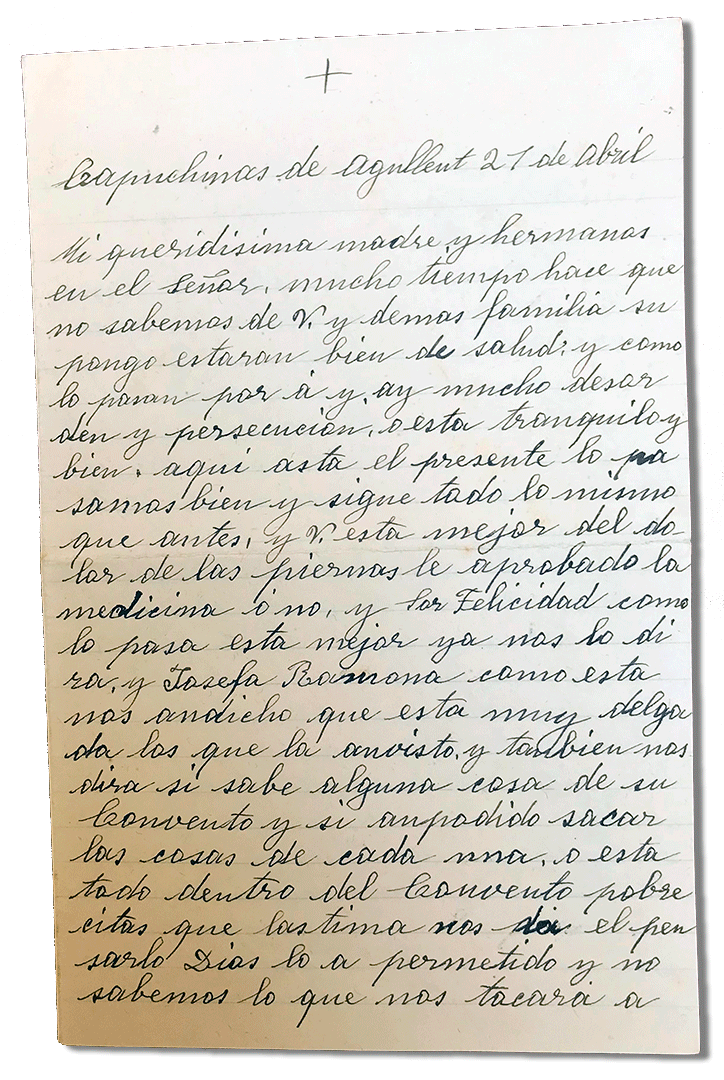 +
Capuchinas de Agullent 21 de Abril
Mi queridisima madre y hermanas
en el Señor, mucho tiempo hace que
no sabemos de V. y demas familia su
pongo estaran bien de salud; y como
lo pasan por á y, ay mucho desor
den y persecucion, o esta tranquilo y
bien. aqui asta el presente lo pa
samos bien y sigue todo lo mismo
que antes, y V. esta mejor del do-
lor de las piernas le aprobado la
medicina ó no, y Sor Felicidad como
lo pasa esta mejor ya nos lo di
ra, y Josefa Ramona como esta
nos andicho que esta muy delga
da los que la anvisto, y tanbien nos
dira si sabe alguna cosa de su
Convento y si anpodido sacar
las cosas de cada una, o esta
todo dentro del Convento pobre
citas que lastima nos da el pen
sarlo Dios lo a permetido y no
sabemos lo que nos tocará a